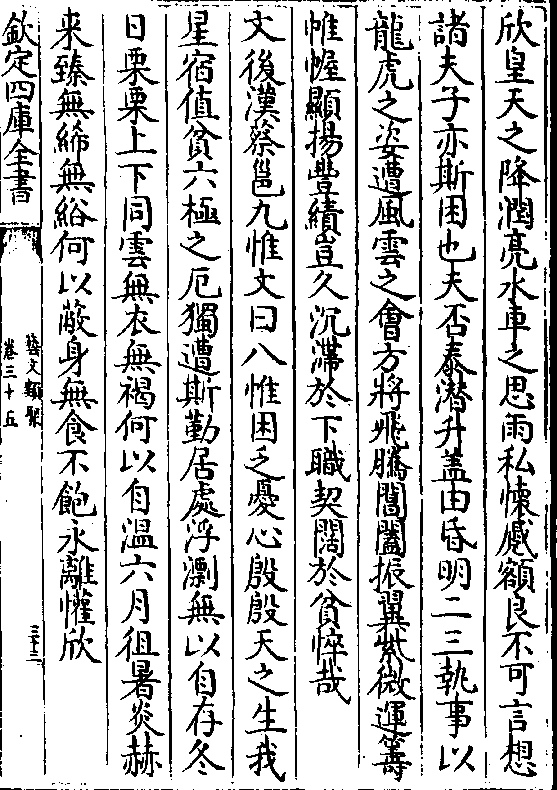 欣皇天之降潤亮水車之思雨私懷慼額良不可言想
諸夫子亦斯困也夫否泰潛升蓋由昏明二三執事以
龍虎之姿遭風雲之會方將飛騰閶闔振翼紫微運籌
帷幄顯揚豐績豈久沉滯於下職契闊於貧悴哉
文後漢蔡邕九惟文曰八惟困乏憂心殷殷天之生我
星宿值貧六極之厄獨遭斯勤居處浮漂無以自存冬
日栗栗上下同雲無衣無褐何以自溫六月徂暑炎赫
来臻無絺無綌何以蔽身無食不飽永離懽欣
欽定四庫全書
藝文類聚
卷三十五
三十三